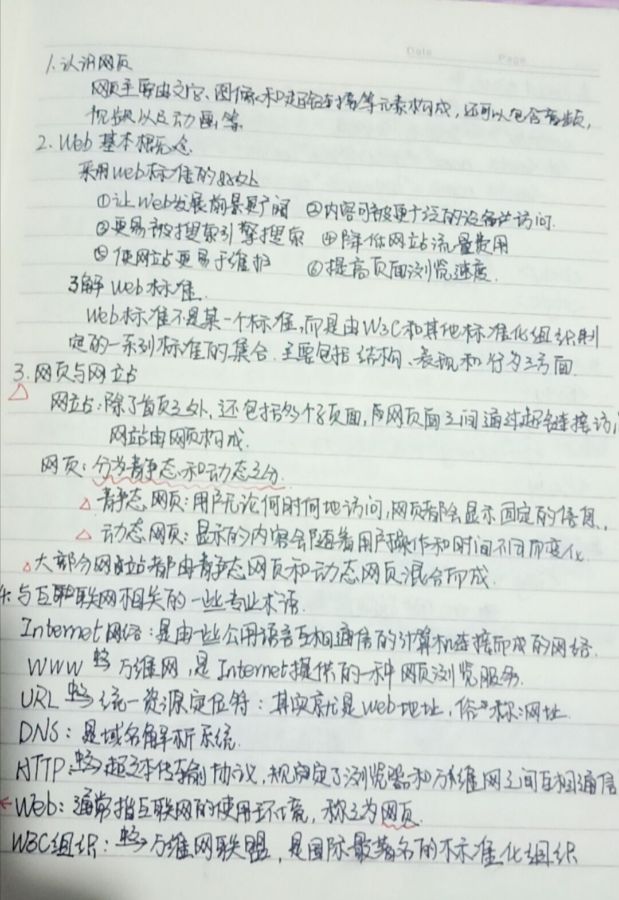 Date Page
1.认识网页
网页主要由文字、图像和超链接等元素构成,还可以包含音频,
视频以及动画等
2.Web 基本概念
采用web标准的好处
①让Web发展前景更广阔 ②内容可被更广泛的设备访问.
③更易被搜索引擎搜索 ④降低网站流量费用
⑤使网站更易于维护 ⑥提高页面浏览速度.
了解Web标准.
Web标准不是某一个标准,而是由W3C和其他标准化组织制
定的一系列标准的集合.主要包括结构、表现和行为三方面.
3.网页与网站
网站:除了首页之外,还包括多个子页面,网页面之间通过超链接访
网站由网页构成.
网页:分为静态和动态之分.
△静态网页:用户无论何时何地访问,网页都会显示固定的信息.
△动态网页:显示的内容会随着用户操作和时间不同而变化.
△大部分网站都由静态网页和动态网页混合而成.
4.与互联网相关的一些专业术语.
Internet网络:是由一些公用语言互相通信的计算机连接而成的网络.
WWW 万维网,是Internet提供的一种网页浏览服务.
URL 统一资源定位符:其实就是Web地址,俗称:网址.
DNS:是域名解析系统.
HTTP: 超文本传输协议,规定了浏览器和万维网之间互相通信
Web:通常指互联网的使用环境,称之为网页.
W3C组织: 万维网联盟,是国际最著名的标准化组织